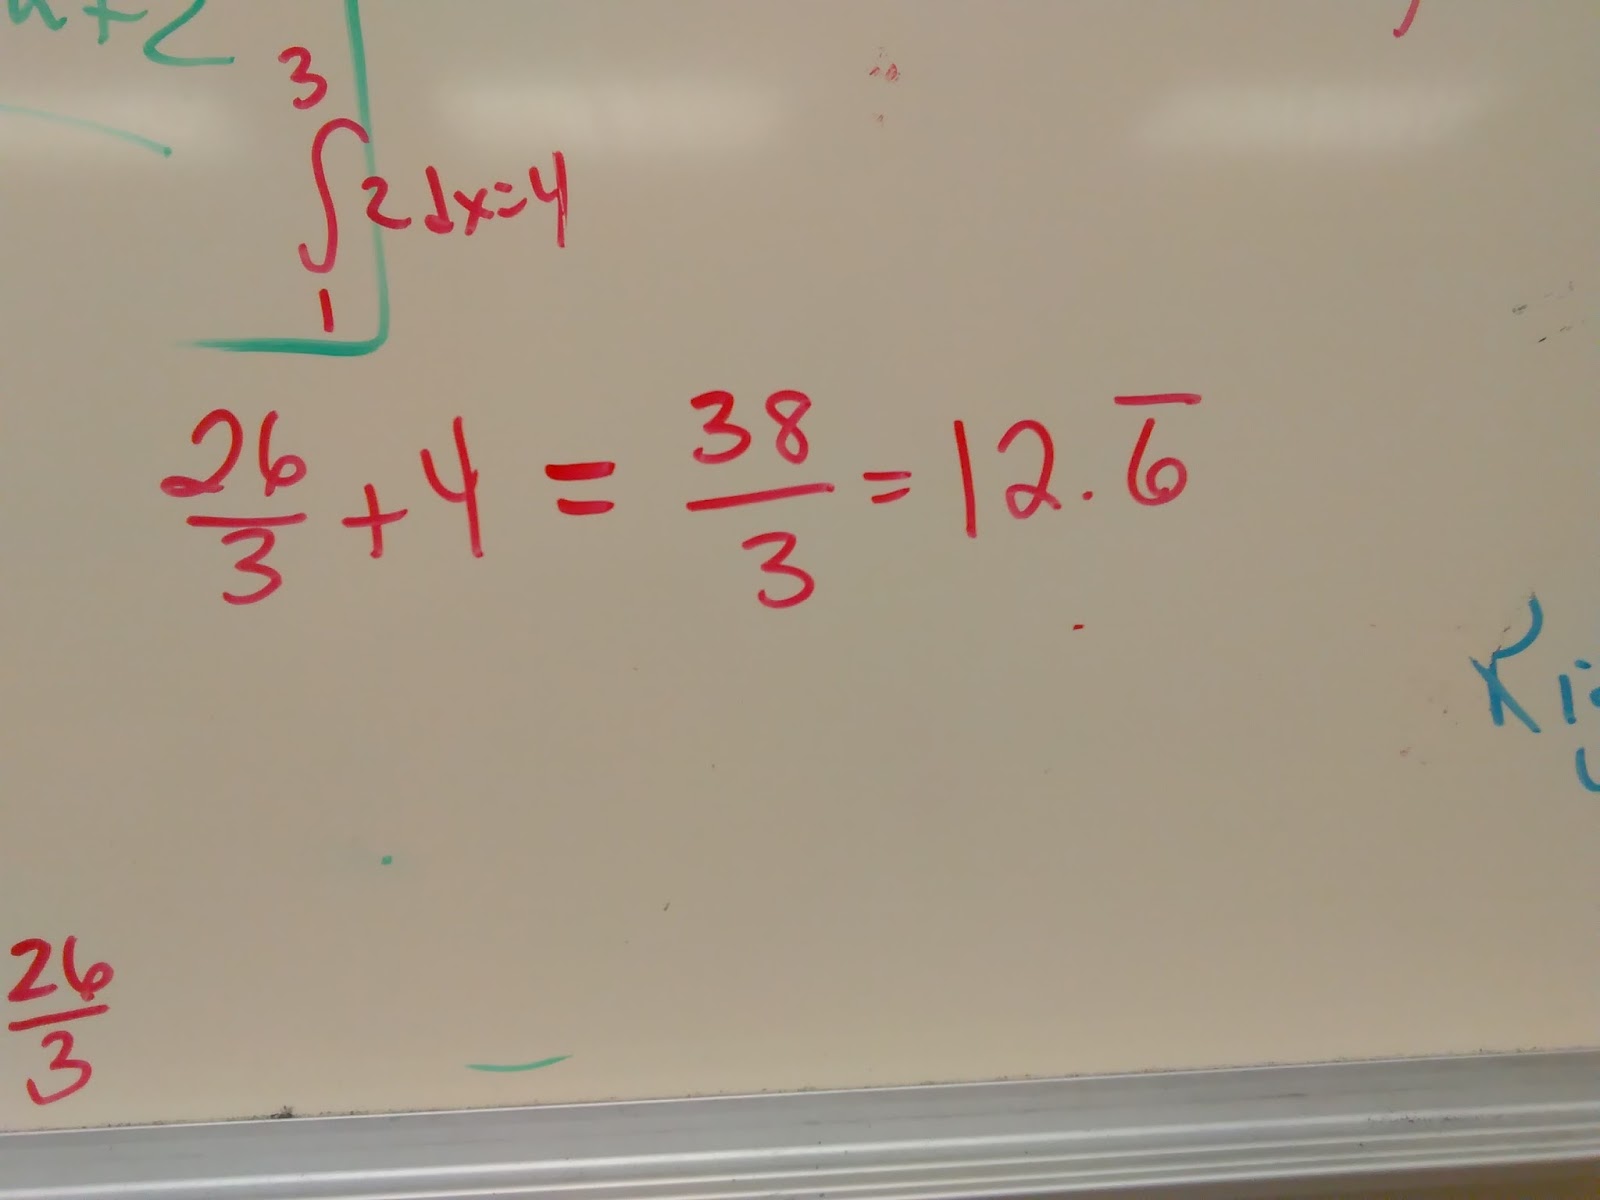 +2
∫₁³ 2 dx = 4
26/3 + 4 = 38/3 = 12.6̅
26/3